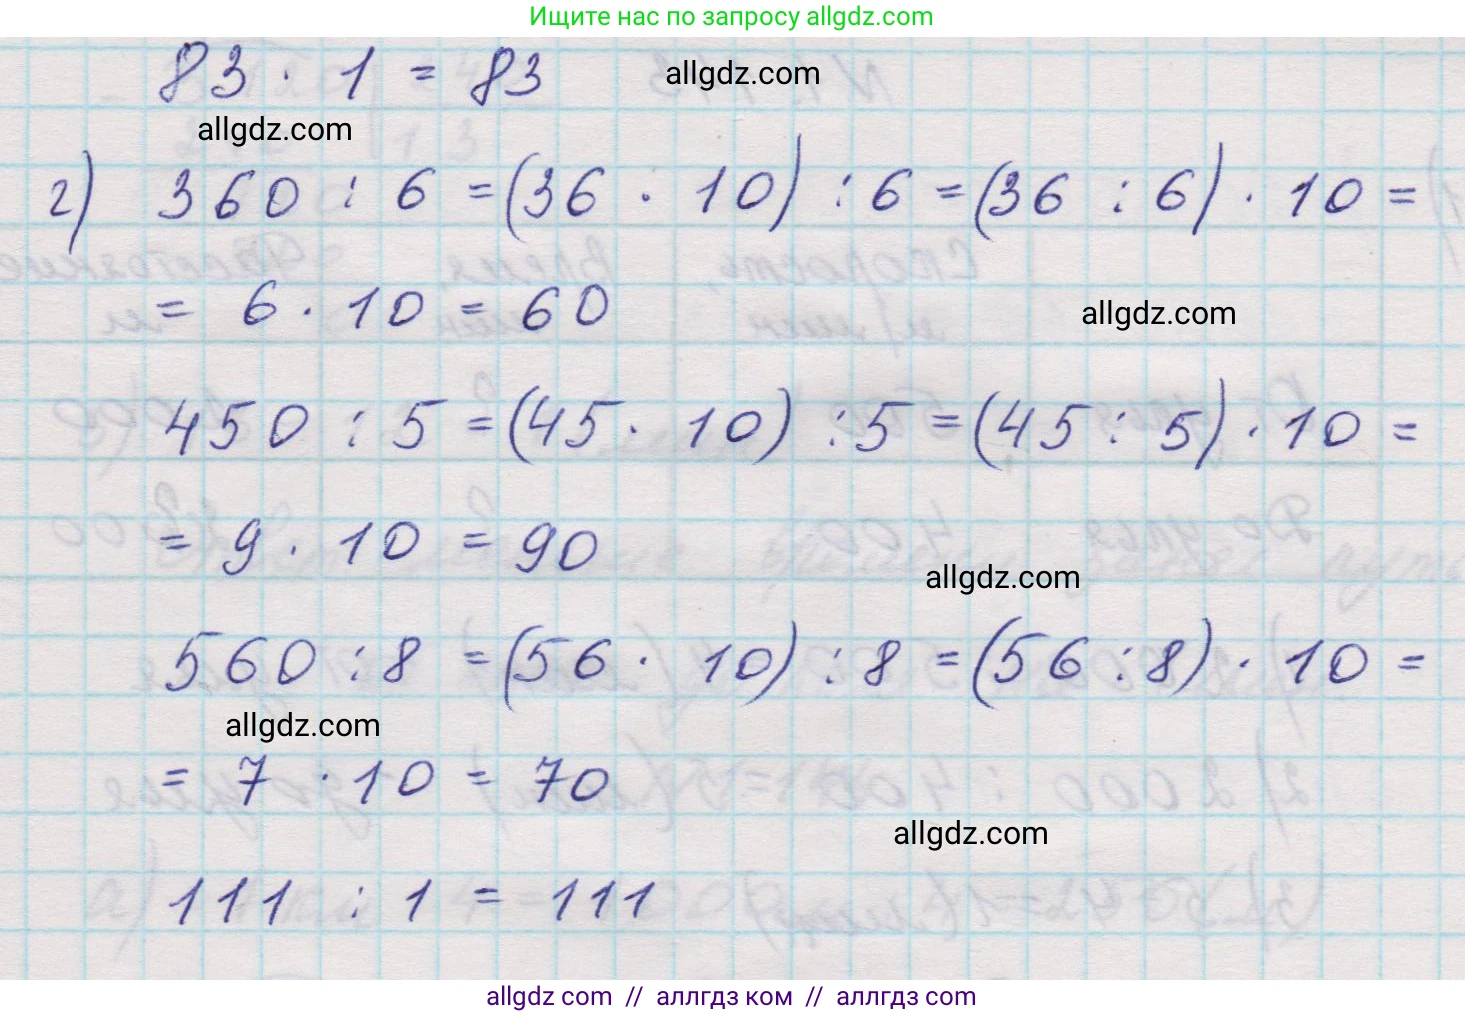 Ищите нас по запросу allgdz.com
83 · 1 = 83
allgdz.com
allgdz.com
г) 360 : 6 = (36 · 10) : 6 = (36 : 6) · 10 =
= 6 · 10 = 60
allgdz.com
450 : 5 = (45 · 10) : 5 = (45 : 5) · 10 =
= 9 · 10 = 90
allgdz.com
560 : 8 = (56 · 10) : 8 = (56 : 8) · 10 =
allgdz.com
= 7 · 10 = 70
allgdz.com
111 : 1 = 111
allgdz com // аллгдз ком // аллгдз com